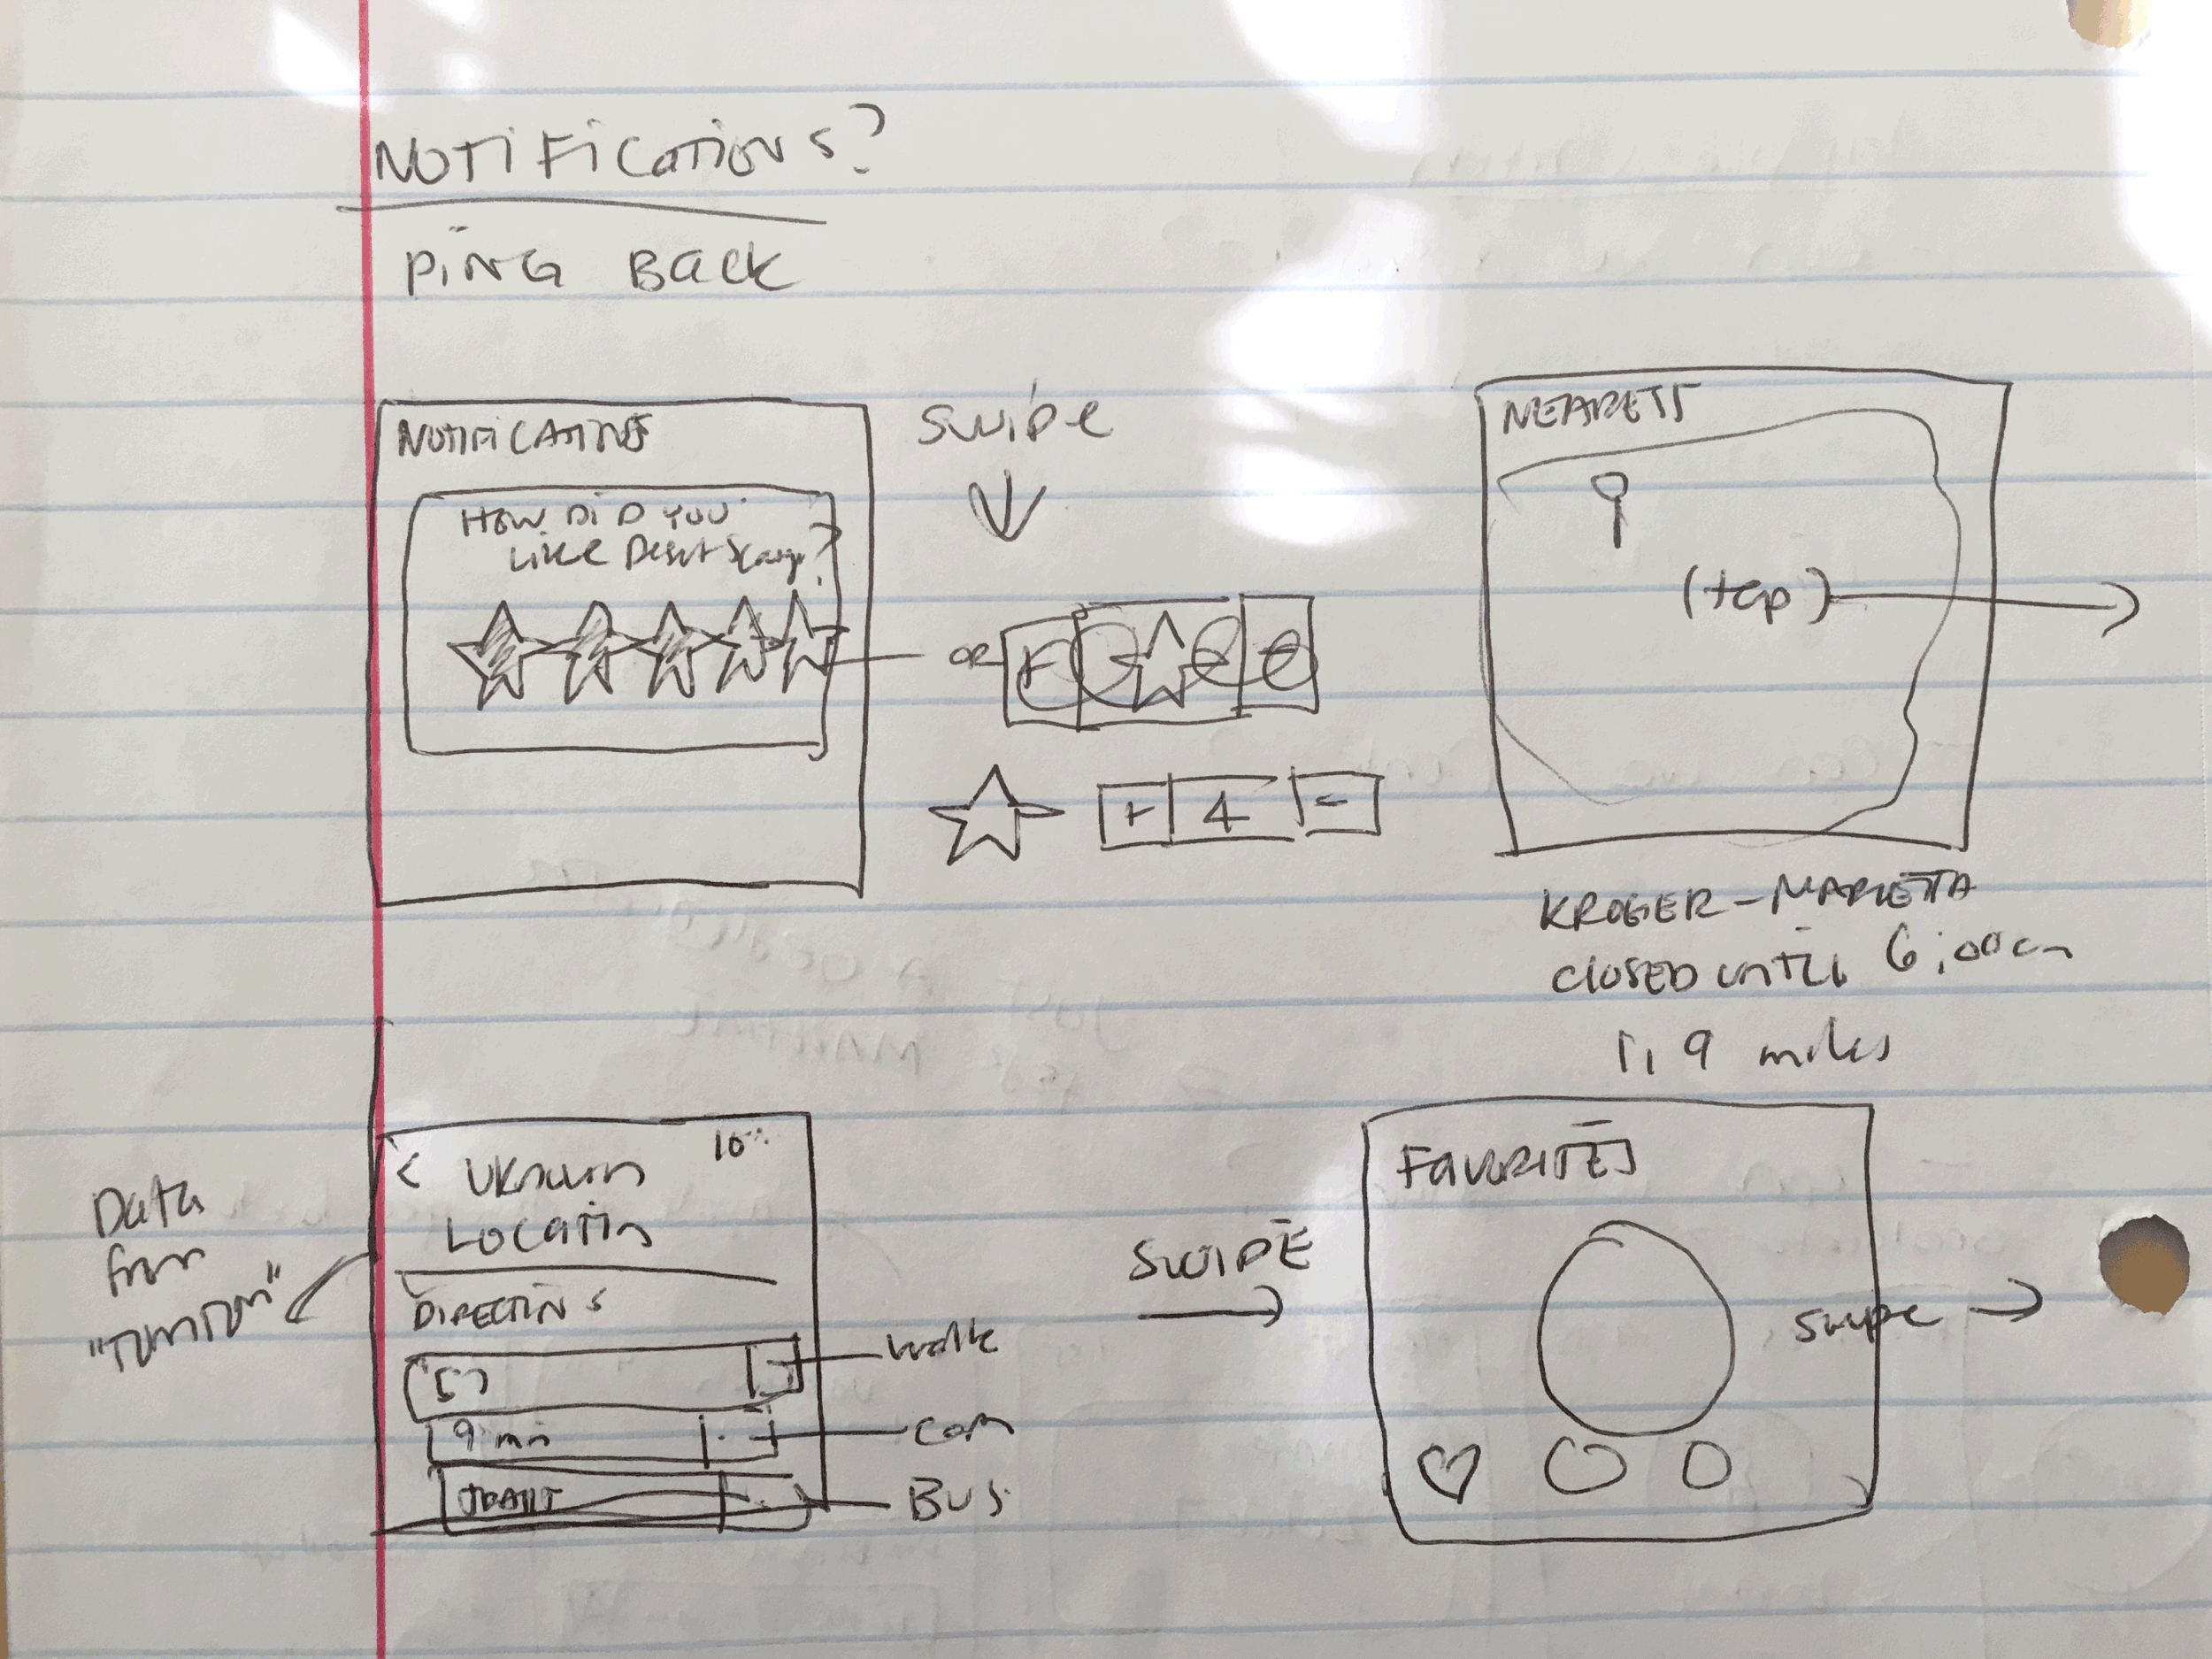 NOTiFicatioNs?
PiNG Back
NOTIFICATIONS
How DiD you
like Desert ?
swipe
OR
+
+ 4 -
NEARETS
(tap)
KROGER-MARIETTA
CLOSED UNTIL 6:00am
1.9 miles
Data
from
"TOMTOM"
<
10
UKnown
Location
DIRECTIONS
57
walk
9 min
car
Bus
SWIPE
FAVORITES
swipe